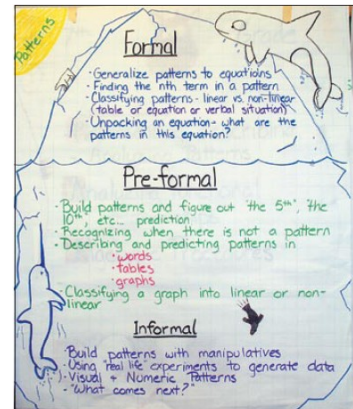 Patterns
Formal
• Generalize patterns to equations
• Finding the nth term in a pattern
• Classifying patterns - linear vs non-linear
(table or equation or verbal situation)
• Unpacking an equation - what are the
patterns in this equation?
Pre-formal
• Build patterns and figure out "the 5th", the
10th, etc... prediction
• Recognizing when there is not a pattern
• Describing and predicting patterns in
• words
• tables
• graphs
• Classifying a graph into linear or non-
linear
Informal
• Build patterns with manipulatives
• Using "real life" experiments to generate data
• Visual + Numeric Patterns
• "What comes next?"